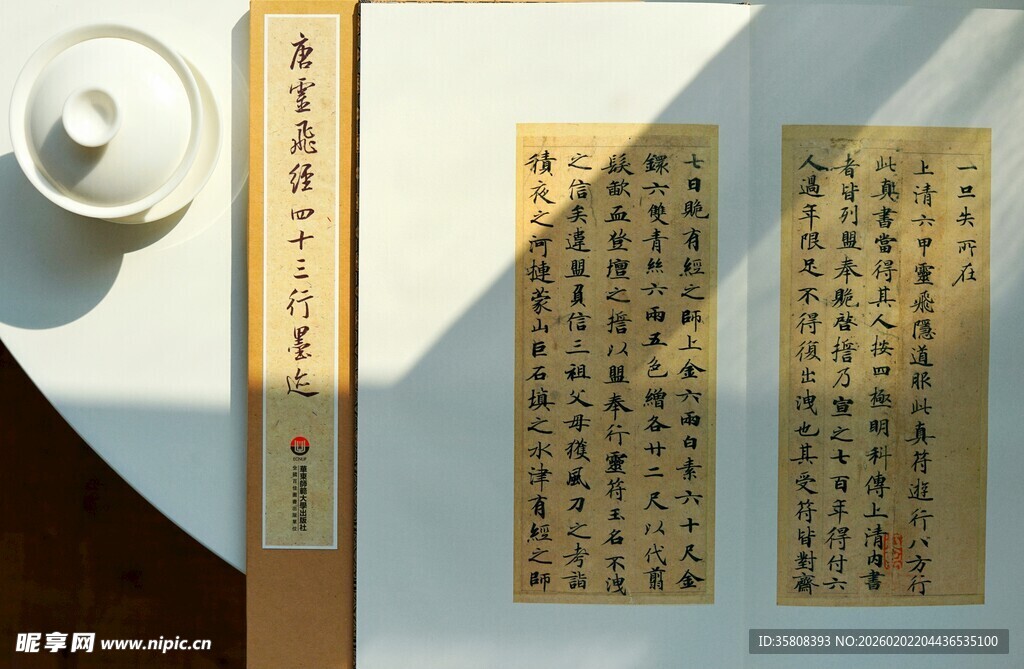 唐靈飛經四十三行墨迹
華東師範大學出版社
全國百佳圖書出版單位
一旦失所在
上清六甲靈飛隱道服此真符遊行八方行
此真書當得其人按四極明科傳上清內書
者皆列盟奉貺啓擔乃宣之七百年得付六
人過年限足不得復出洩也其受符皆對齋
七日貺有經之師上金六兩白素六十尺金
鐶六雙青絲六兩五色繒各廿二尺以代翦
髮歃血登壇之擔以盟奉行靈符玉名不洩
之信矣違盟負信三祖父母獲風刀之考詣
積夜之河摙蒙山巨石填之水津有經之師
昵享网 www.nipic.cn
ID:35808393 NO:20260202204436535100